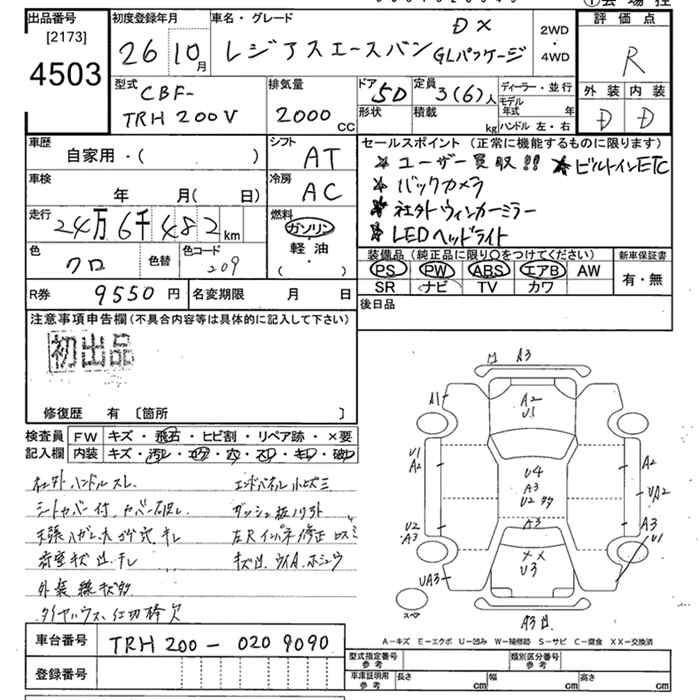 出品番号
[2173]
4503
初度登録年月
26 10月
車名・グレード
DX
レジアスエースバン GLパッケージ
2WD
・
4WD
評価点
R
外装 内装
D D
型式
CBF-
TRH 200V
排気量
2000 cc
ドア 5D
形状
定員 3(6)人
積載 kg
ディーラー・並行
モデル年式 年
ハンドル 左・右
車歴
自家用・( )
シフト AT
車検
年 月( 日)
冷房 AC
走行
24万6千482km
燃料
ガソリン
軽・油
( ・ )
色
クロ
色替
色コード
209
R券 9550円
名変期限 月 日
セールスポイント (正常に機能するものに限ります)
★ユーザー買取!! ★ビルトインETC
★バックカメラ
★社外ウィンカーミラー
★LEDヘッドライト
装備品 (純正品に限り○をつけてください)
新車保証書
PS PW ABS エアB AW
有・無
SR ナビ TV カワ
後日品
注意事項申告欄(不具合内容等は具体的に記入して下さい)
初出品
修復歴 有 〔箇所 〕
検査員
記入欄
FW キズ・飛石・ヒビ割・リペア跡・×要
内装 キズ・汚レ・コゲ・穴・スレ・キレ・破レ
社外ハンドルスレ
シートカバー付
外装線キズ多
A3
A1
A2
U1
U1
A2
U4
A3
U2 多
A2
UA2
U2
A3
A3
A3
U1
XX
U3
UA3
スペア
A3
A-キズ E-エクボ U-凹み W-補修跡 S-サビ C-腐食 XX-交換済
車台番号 TRH 200 - 0209090
登録番号
型式指定番号
参考
類別区分番号
参考
車庫証明用
参考
長さ cm
幅 cm
高さ cm